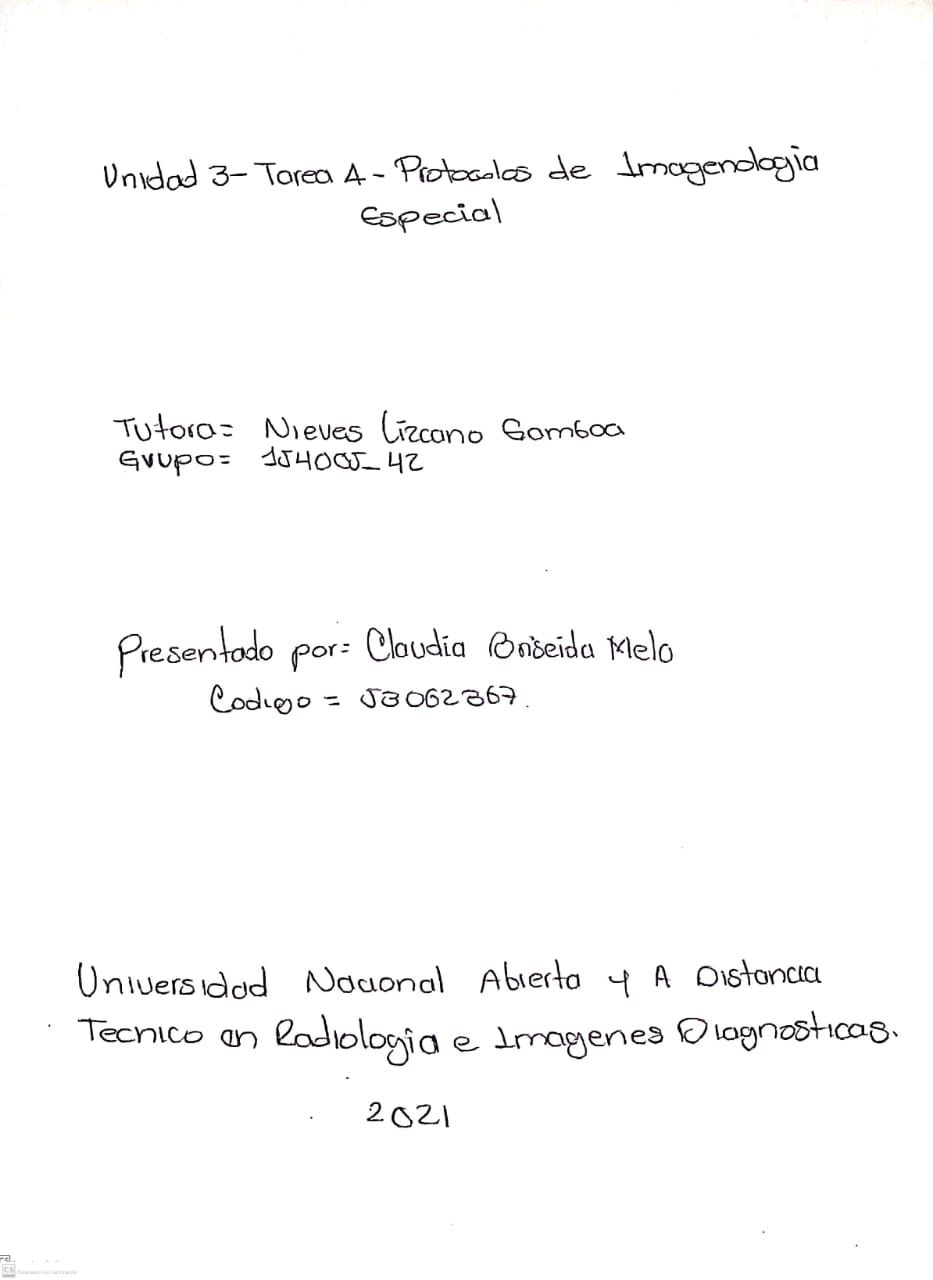 Unidad 3- Tarea 4 - Protocolos de Imagenologia
Especial
Tutora= Nieves Lizcano Gamboa
Grupo= 154005_42
Presentado por= Claudia Briseida Melo
Codigo = 53062367.
Universidad Nacional Abierta y A Distancia
Tecnico en Radiologia e Imagenes Diagnosticas.
2021
CS